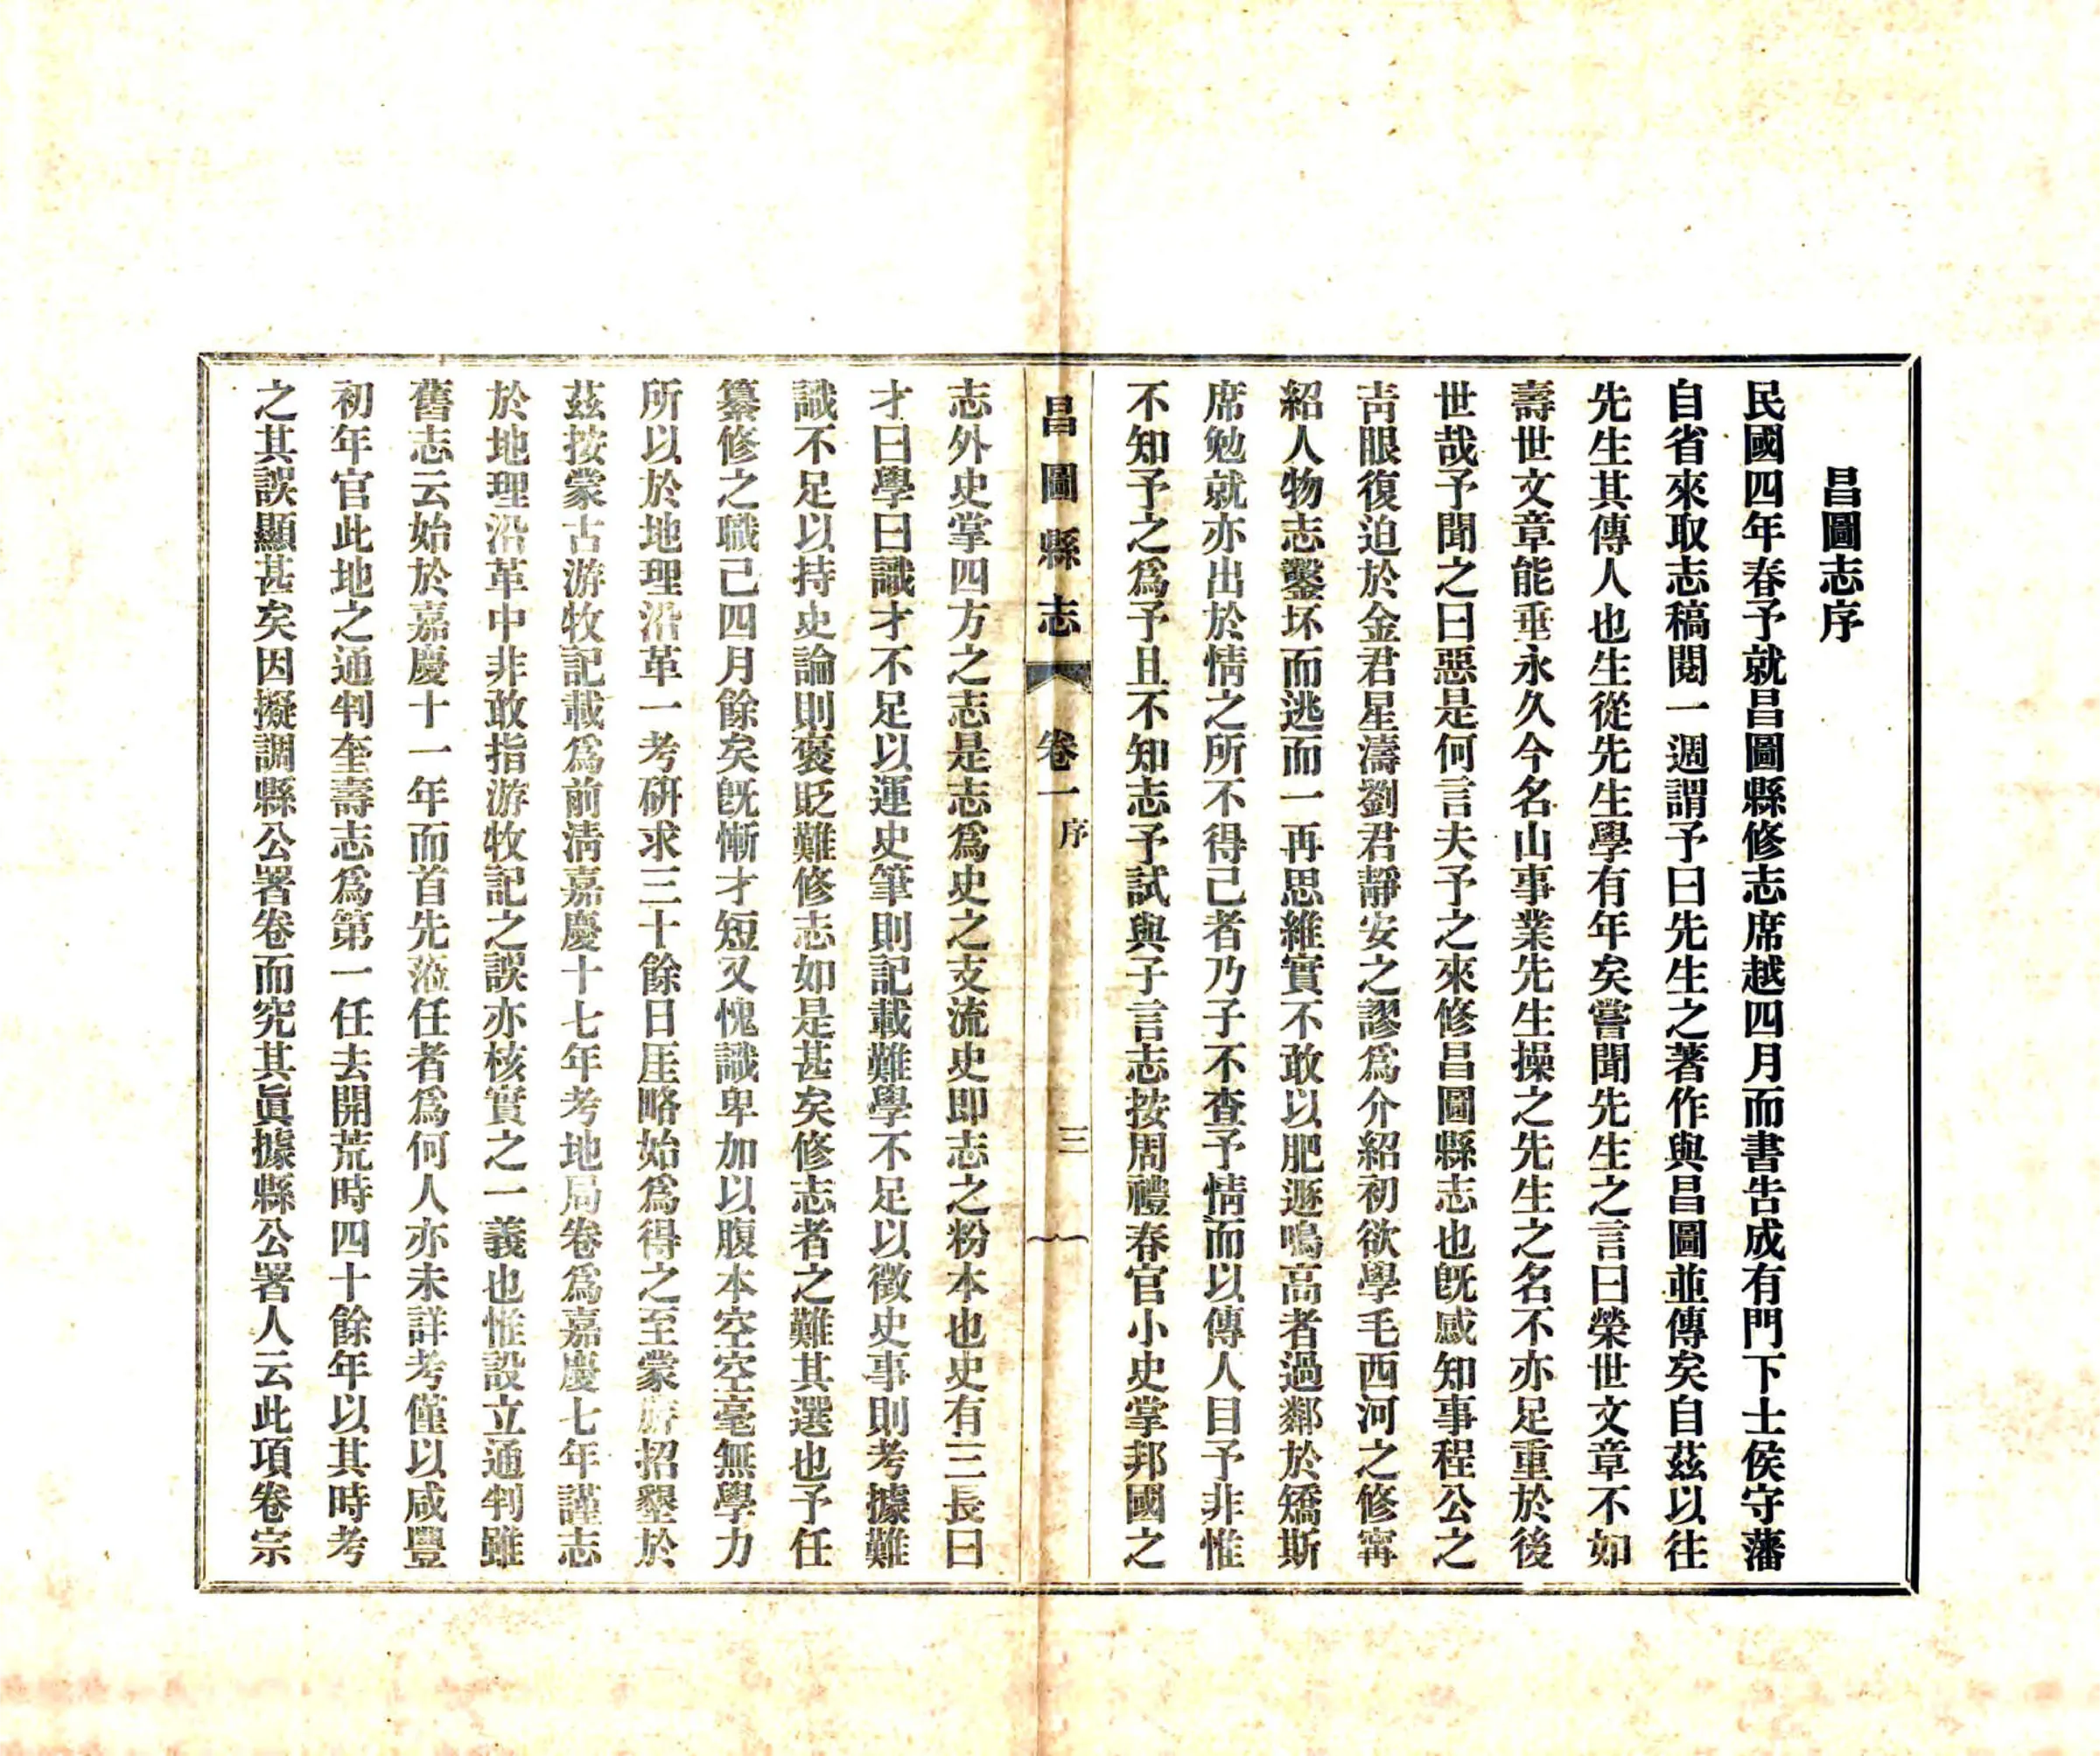 昌圖志序
民國四年春予就昌圖縣修志席越四月而書告成有門下士侯守藩
自省來取志稿閱一週謂予曰先生之著作與昌圖並傳矣自茲以往
先生其傳人也生從先生學有年矣嘗聞先生之言曰榮世文章不如
壽世文章能垂永久今名山事業先生操之先生之名不亦足重於後
世哉予聞之曰惡是何言夫予之來修昌圖縣志也旣感知事程公之
靑眼復迫於金君星濤劉君靜安之謬爲介紹初欲學毛西河之修甯
紹人物志鑿坏而逃而一再思維實不敢以肥遯鳴高者過鄰於矯斯
席勉就亦出於情之所不得已者乃子不查予情而以傳人目予非惟
不知予之爲予且不知志予試與子言志按周禮春官小史掌邦國之
昌圖縣志 卷一 序 三
志外史掌四方之志是志爲史之支流史即志之粉本也史有三長曰
才曰學曰識才不足以運史筆則記載難學不足以徵史事則考據難
識不足以持史論則褒貶難修志如是甚矣修志者之難其選也予任
纂修之職已四月餘矣旣慚才短又愧識卑加以腹本空空毫無學力
所以於地理沿革一考硏求三十餘日厓略始爲得之至蒙旂招墾於
茲按蒙古游牧記載爲前淸嘉慶十七年考地局卷爲嘉慶七年謹志
於地理沿革中非敢指游牧記之誤亦核實之一義也惟設立通判雖
舊志云始於嘉慶十一年而首先蒞任者爲何人亦未詳考僅以咸豐
初年官此地之通判奎壽志爲第一任去開荒時四十餘年以其時考
之其誤顯甚矣因擬調縣公署卷而究其眞據縣公署人云此項卷宗